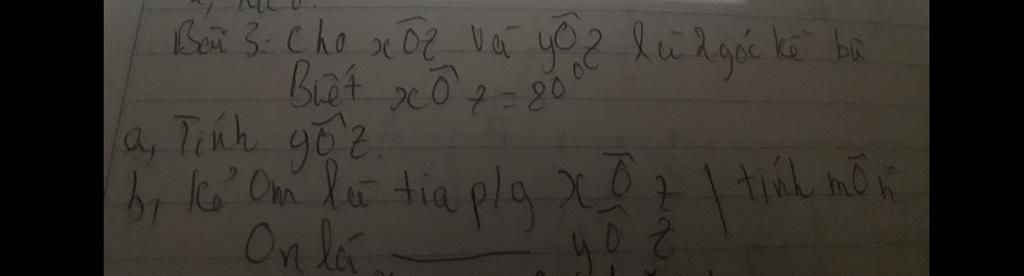 Bài 3: Cho xÔz và yÔz là 2 góc kề bù
Biết xÔz = 80°
a, Tính yÔz.
b, Kẻ Om là tia p/g xÔz | tính mÔn
On là ——— yÔz